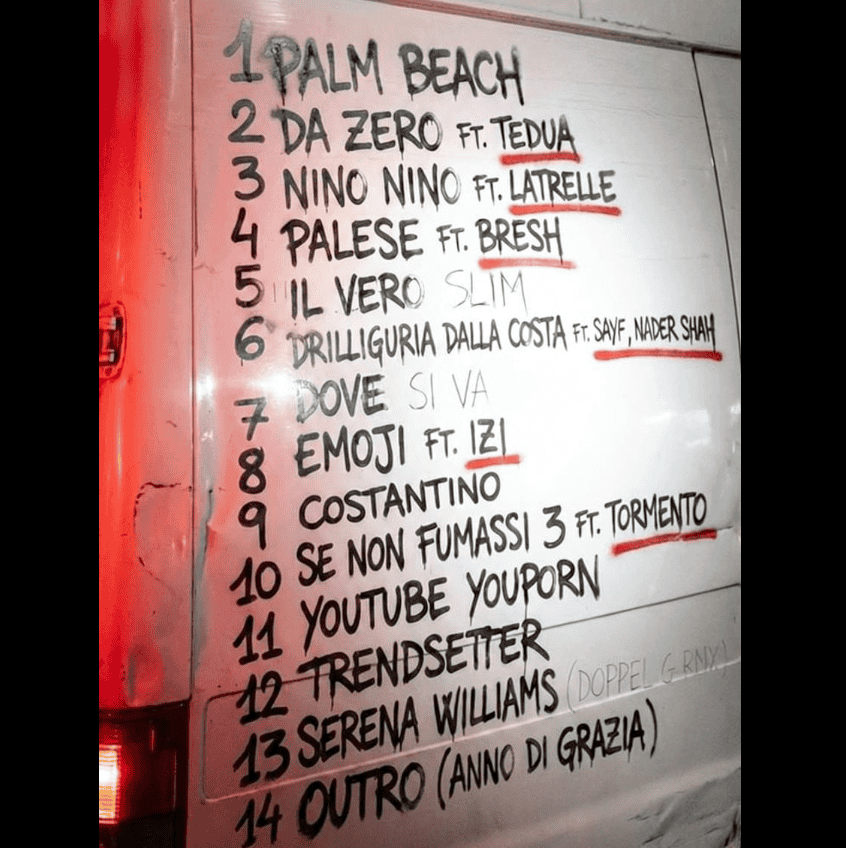 1 PALM BEACH
2 DA ZERO FT. TEDUA
3 NINO NINO FT. LATRELLE
4 PALESE FT. BRESH
5 IL VERO SLIM
6 DRILLIGURIA DALLA COSTA FT. SAYF, NADER SHAH
7 DOVE SI VA
8 EMOJI FT. IZI
9 COSTANTINO
10 SE NON FUMASSI 3 FT. TORMENTO
11 YOUTUBE YOUPORN
12 TRENDSETTER
13 SERENA WILLIAMS (DOPPEL G RMX)
14 OUTRO (ANNO DI GRAZIA)